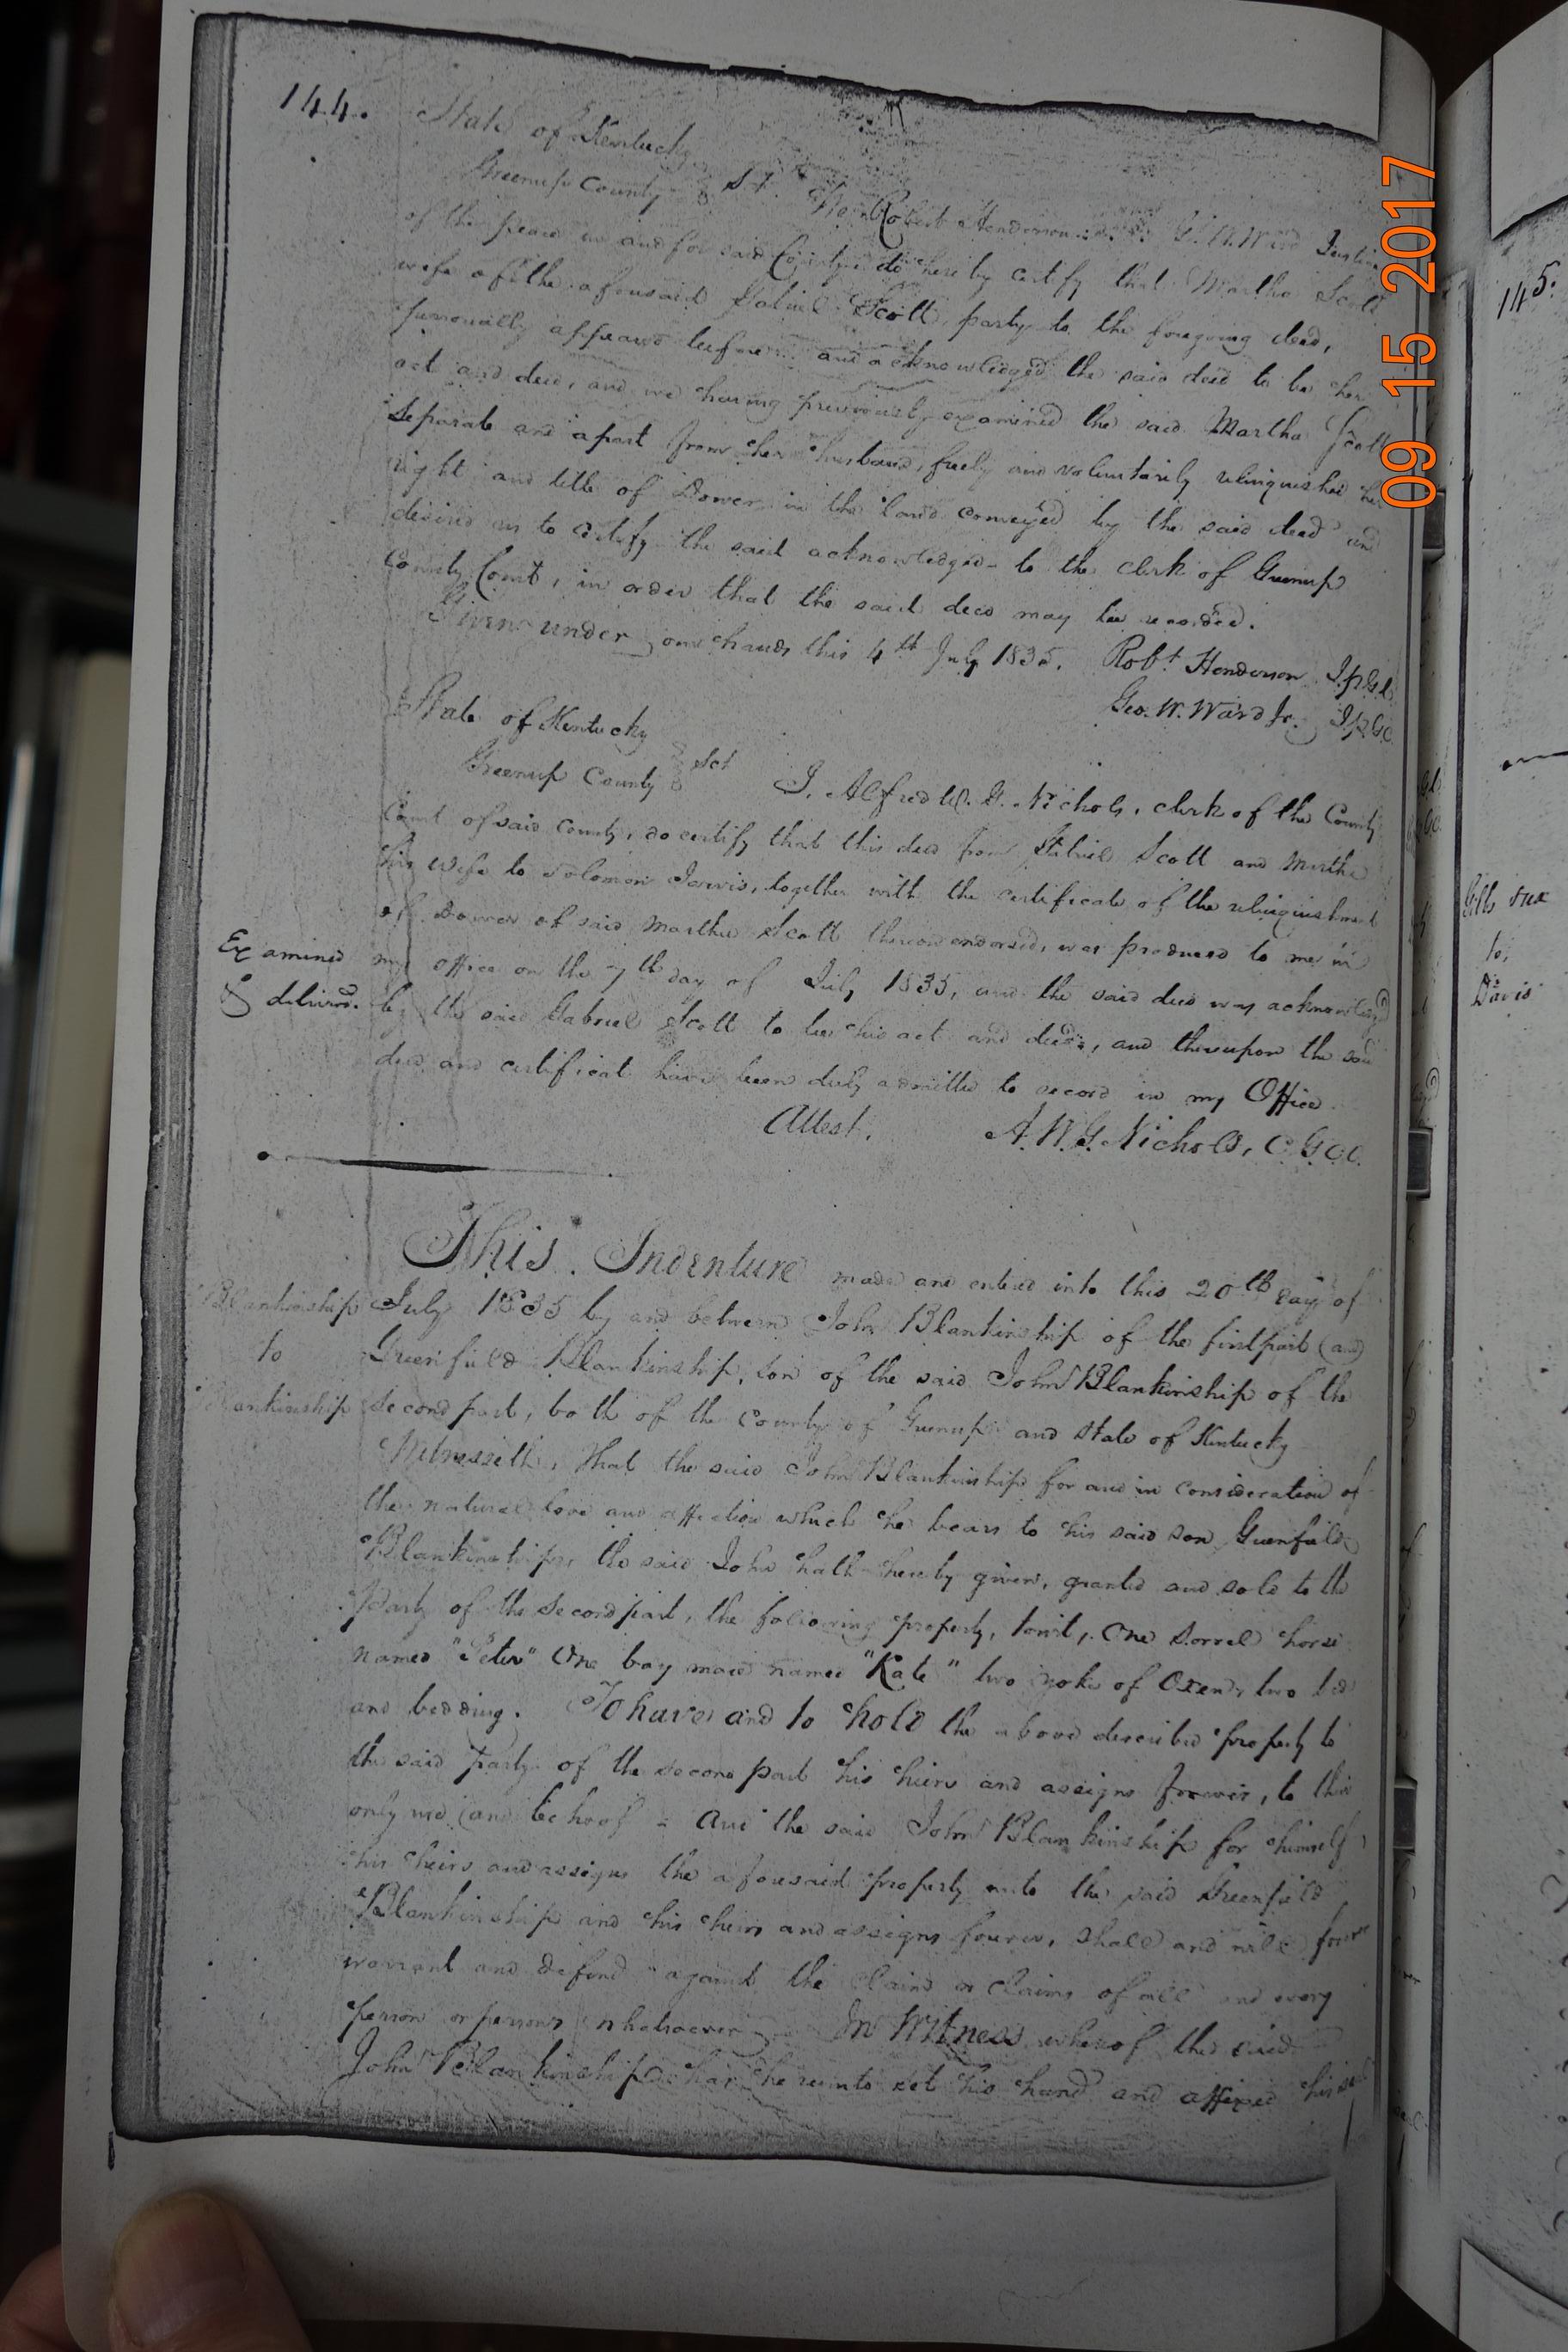 144.
State of Kentucky
Greenup County Sct. We Robert Henderson G. W. Ward Justices
of the peace in and for said County, do hereby certify that Martha Scott
wife of the aforesaid Gabriel Scott, party to the foregoing deed,
personally appeared before and acknowledged the said deed to be her
act and deed, and we having previously examined the said Martha Scott
Separate and apart from her husband, freely and voluntarily relinquished her
right and title of Dower in the land conveyed by the said deed and
desired us to certify the said acknowledged to the clerk of Greenup
County Court, in order that the said deed may be recorded.
Given under our hands this 4th July 1835. Robt Henderson
Geo. W. Ward Jr.
State of Kentucky
Greenup County Sct I. Alfred W. G. Nichols, clerk of the County
Court of said County, do certify that this deed from Gabriel Scott and Martha
his wife to Solomon Jarvis, together with the certificate of the relinquishment
of Dower of said Martha Scott thereon endorsed, was produced to me in
Examined
my office on the 7th day of July 1835, and the said deed was acknowledged
& delivered.
by the said Gabriel Scott to be his act and deed, and thereupon the said
deed and certificate have been duly admitted to record in my Office
Attest. A. W. G. Nichols, C G C C.
This Indenture made and entered into this 20th day of
Blankinship
July 1835 by and between John Blankinship of the first part (and)
to
Greenfield Blankinship, son of the said John Blankinship of the
Blankinship
Second part, both of the County of Greenup and State of Kentucky
Witnesseth, that the said John Blankinship for and in consideration of
the natural love and affection which he bears to his said son Greenfield
Blankinship, the said John hath hereby given, granted and sold to the
Party of the Second part, the following property, towit, One Sorrel horse
named "Peter" One bay mare named "Kate" two yoke of Oxen, two bed
and bedding. To have and to hold the above described property to
the said Party of the second part his heirs and assigns forever, to their
only use (and behoof = And the said John Blankinship for himself
his heirs and assigns the aforesaid property unto the said Greenfield
Blankinship and his heirs and assigns forever, shall and will
warrant and defend against the claim or claims of all and every
person or persons whatsoever In Witness whereof the said
John Blankinship has hereunto set his hand and affixed his seal
145.
to,
Davis
09 15 2017